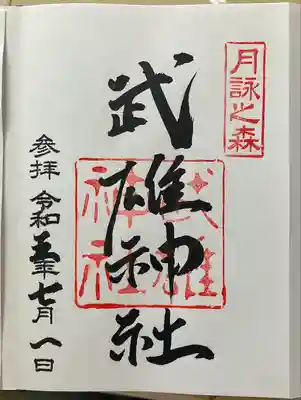 月詠之森
武雄神社
武雄神社
参拝 令和五年七月八日